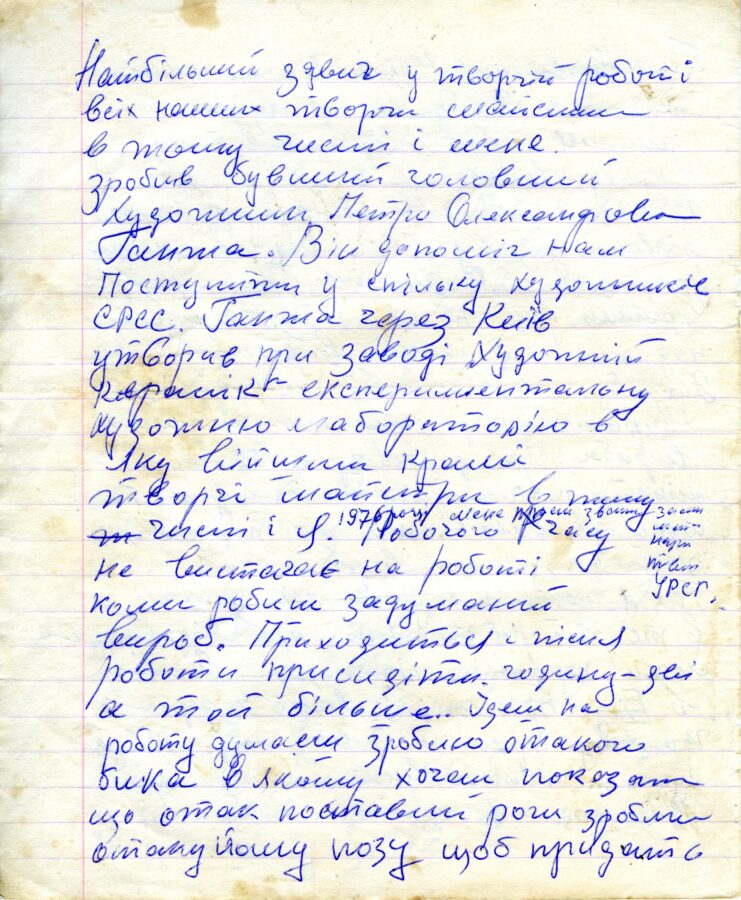 Найбільший здвиг у творчій роботі
всіх наших творчи майстрів
в тому числі і мене
зробив бувший головний
Художник Петро Олександрови
Ганжа. Він допоміг нам
Поступити у спільку художників
СРСС. Ганжа через Київ
утворив при заводі Художній
керамік експериментальну
художню лабораторію в
яку війшли кращі
творчі майстри в тому
числі і Я. 1976 році мені звання засл
майс
нар
твор
УРСР.
Робочого часу
не вистачає на роботі
коли робиш задуманий
вироб. Приходиться і після
роботи присидіти годину-дві
а той більше.. Ідеш на
роботу думаєш зроблю отакого
бика в якому хочеш показати
що отак поставий роги зроблю
отаку йому позу щоб придать